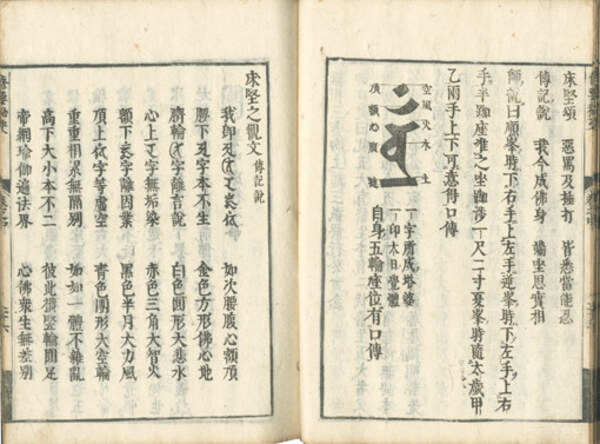 床堅頌 惡罵及捶打 皆悉當能忍
傳記說 我今成佛身 端坐思實相
師說曰順峯時下右手上左手逆峯時下左手上右
手半跏座 之坐 一尺二寸夏峯時隨太歲甲
乙兩手上下可意得口傳
空風火水土
頂額心腹膝
一字所成塔婆
一印大日覺體
自身五輪座位有口傳
床堅之觀文 傳記說
我即 如次腰腹心額頂
腰下 字本不生 金色方形佛心地
臍輪 字離言說 白色圓形大悲水
心上 字無垢染 赤色三角大智火
額下 字離因業 黑色半月大力風
頂上 字等虛空 青色團形大空輪
重重相 無隔別 如如一體不雜亂
高下大小本不二 彼此橫竪輪圓足
帝網瑜伽遍法界 心佛衆生無差別